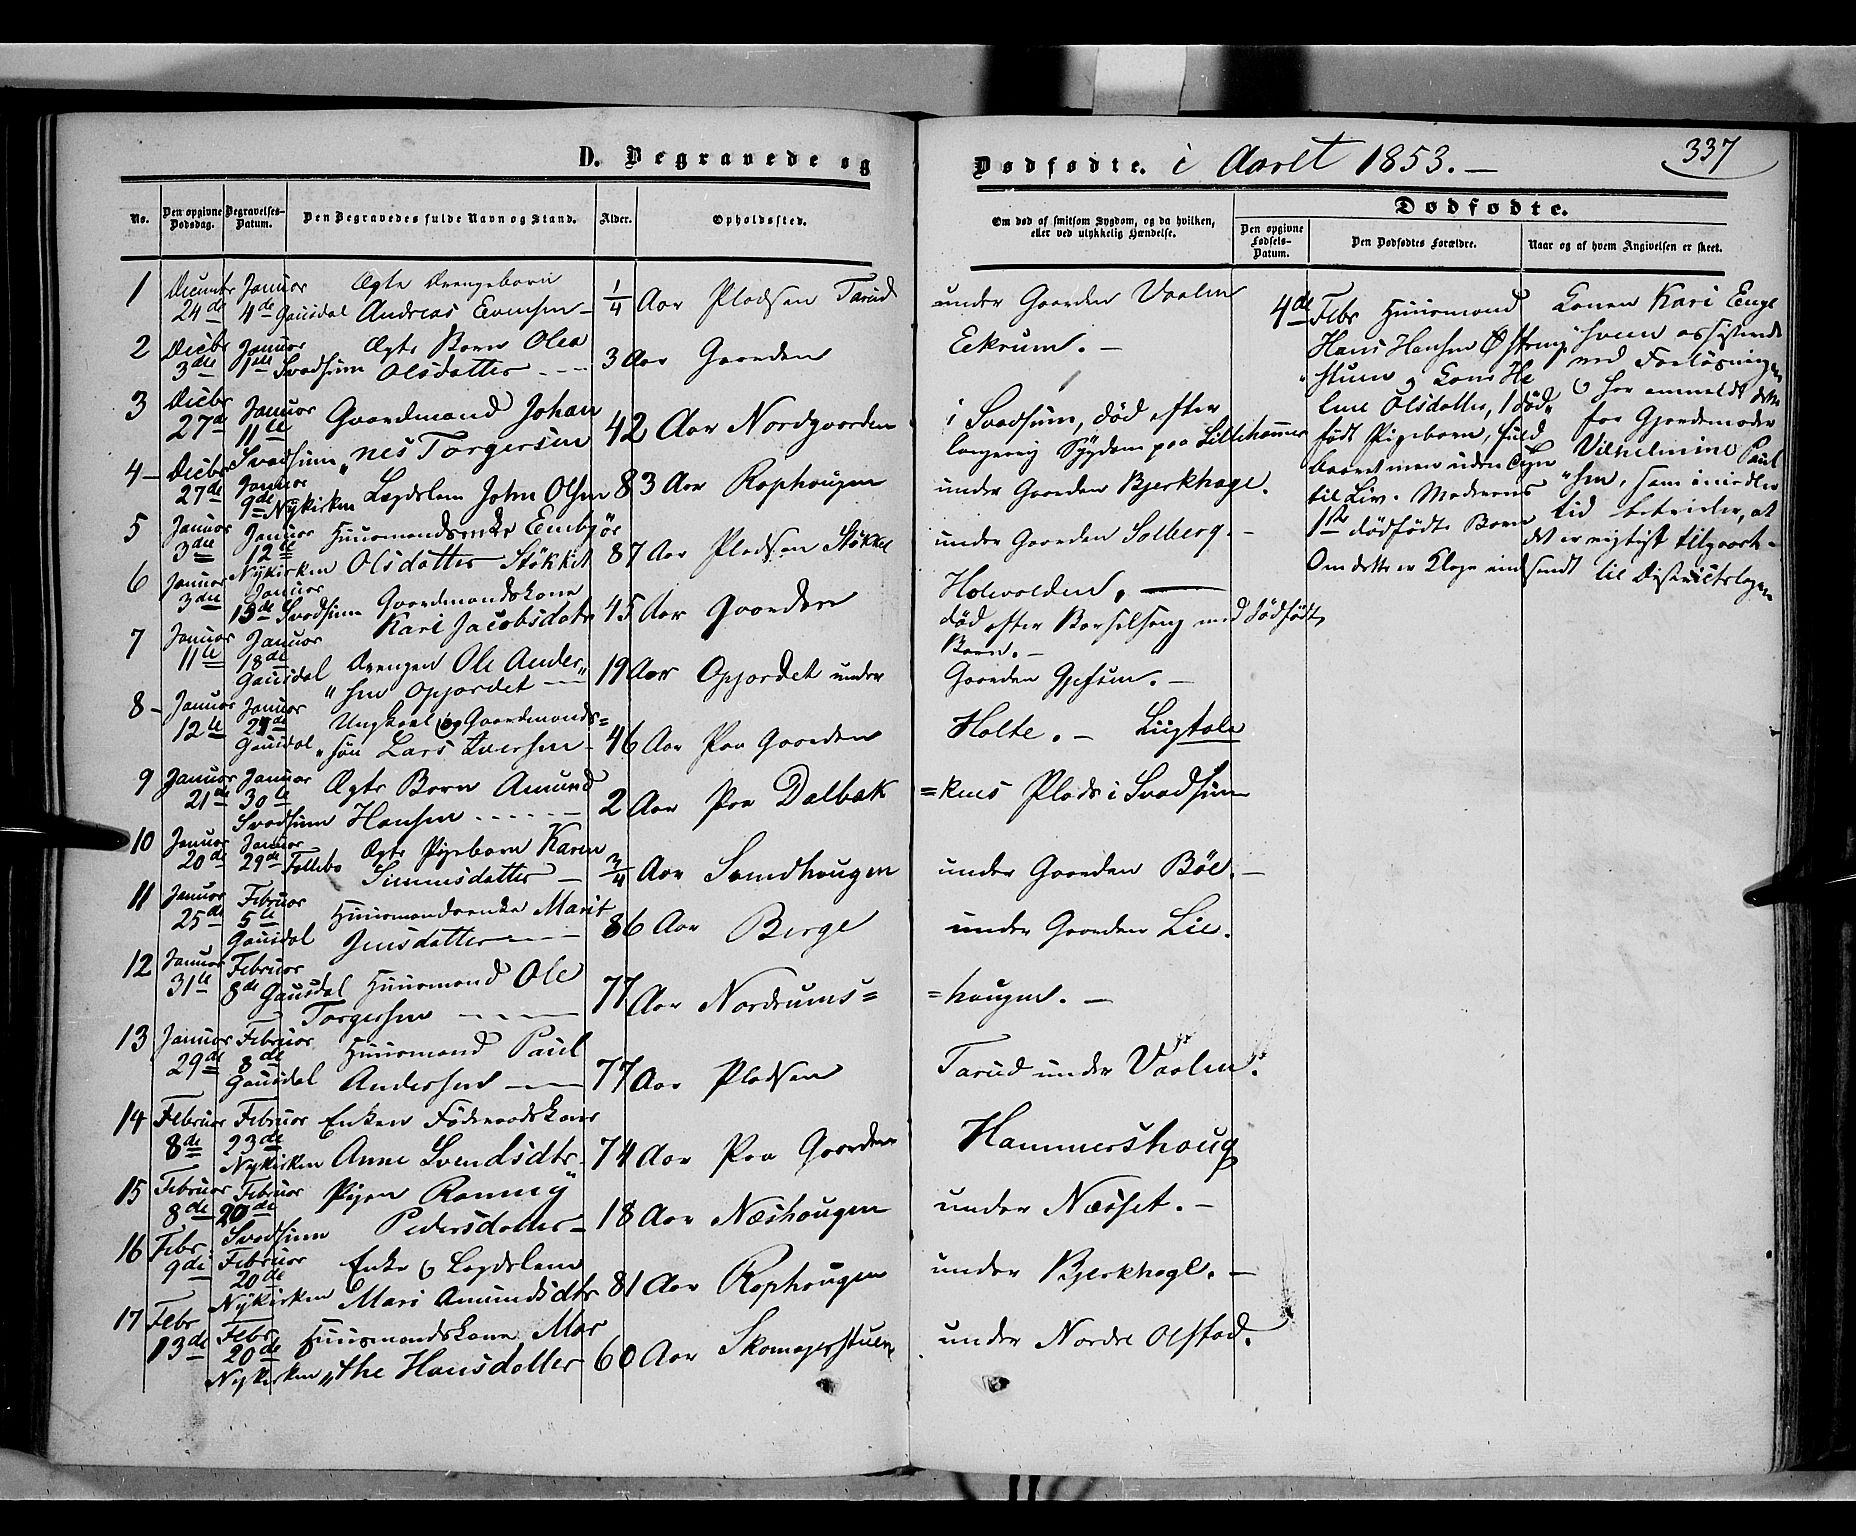 D. Begravede og
Dødfødte. i Aaret 1853. —
337
No.
Den opgivne Dødsdag.
Begravelses-Datum.
Den Begravedes fulde Navn og Stand.
Alder.
Opholdssted.
Om død af smitsom Sygdom, og da hvilken,
eller ved ulykkelig Hændelse.
Dødfødte.
Den opgivne Fødsels-Datum.
Den Dødfødtes Forældre.
Naar og af hvem Angivelsen er skeet.
1 Decembr Januar Ægte Drengebarn 1/4 Aar Pladsen Tarud under Gaarden Vaalen
24de 4de Gausdal Andreas Evensen —
2 Decbr Januar Ægte Barn Olea 3 Aar Gaarden Eekrum. —
3die Svadsum Olsdatter
3 Decbr Januar Gaardmand Johan 42 Aar Nordgaarden i Svadsum, død efter
27de 11te Svadsum „nes Torgersen langvarig Sygdom paa Lillehammer
4 — Decbr Januar Lægdslem John Olsen 83 Aar Rophougen under Gaarden Bjerkhage.
27de 9de Nykirken
5 Januar Januar Huusmandsenke Embjør 87 Aar Pladsen Støkket under Gaarden Solberg. —
3die 12te Nykirken Olsdatter Støkket
6 Januar Januar Gaardmandskone 45 Aar Gaarden Holevolden. —
3die 13de Svadsum Kari Jacobsdatr død efter Barselseng med dødfødt
Barn. —
7 Januar Januar Drengen Ole Anders„ 19 Aar Opjordet under Gaarden Gjefsen. —
11te 18de Gausdal „sen Opjordet
8 — Januar Januar Ungkarl og Gaardmands= 46 Aar Paa Gaarden Holte. — Liigtale
12te Gausdal „søn Lars Iversen —
9 Januar Januar Ægte Barn Amund 2 Aar Paa Dalbak =kens Plads i Svadsum
21de 30te Svadsum Hansen
10 Januar Januar Ægte Pigebarn Karen 3/4 Aar Svendhougen under Gaarden Böe. —
20de 29de Follebo Simensdatter —
11 Januar Februar Huusmandsenke Marit 86 Aar Berge under Gaarden Lie.
25de 5te Gausdal Jensdatter
12 Januar Februar Huusmand Ole 77 Aar Nordrums= =hougen. —
31te 8de Gausdal Torgersen
13 Januar Februar Huusmand Paul 77 Aar Pladsen Tarud under Vaalen.
29de 8de Gausdal Andersen
14 Februar Februar Enken Föderaadskone 74 Aar Paa Gaarden Hammershoug
8de 23de Nykirken Anne Svendsdtr
15 Februar Februar Pigen Ronnøy 18 Aar Næshougen under Næsset. —
8de 20de Svadsum Pedersdatter —
16 Febr. Februar Enke og Lægdslem 81 Aar Rophougen under Bjerkhage. —
9de 20de Nykirken Mari Amundsdtr
17 Febr Febr Huusmandskone Mar 60 Aar Skomagerstuen under Nordre Olstad.
13de 20de Nykirken „the Hansdatter
4de Febr Huusmand
Hans Hansen Østeng
„stuen og Kone He
lene Olsdatter, 1 död„
födt Pigebarn, fuld
baaret men uden Tegn
til Liv. Moderens
1ste dödfödte Barn
Om dette er Klage indsendt til Districtslægen
Konen Kari Enge
„hven assisterede
ved Forløsningen
og har anmeldt dette
for Gjordemoder
Vilhelmine Paul
„sen, som imidler
tid betvivler, at
det er rigtigt tilgaaet. —